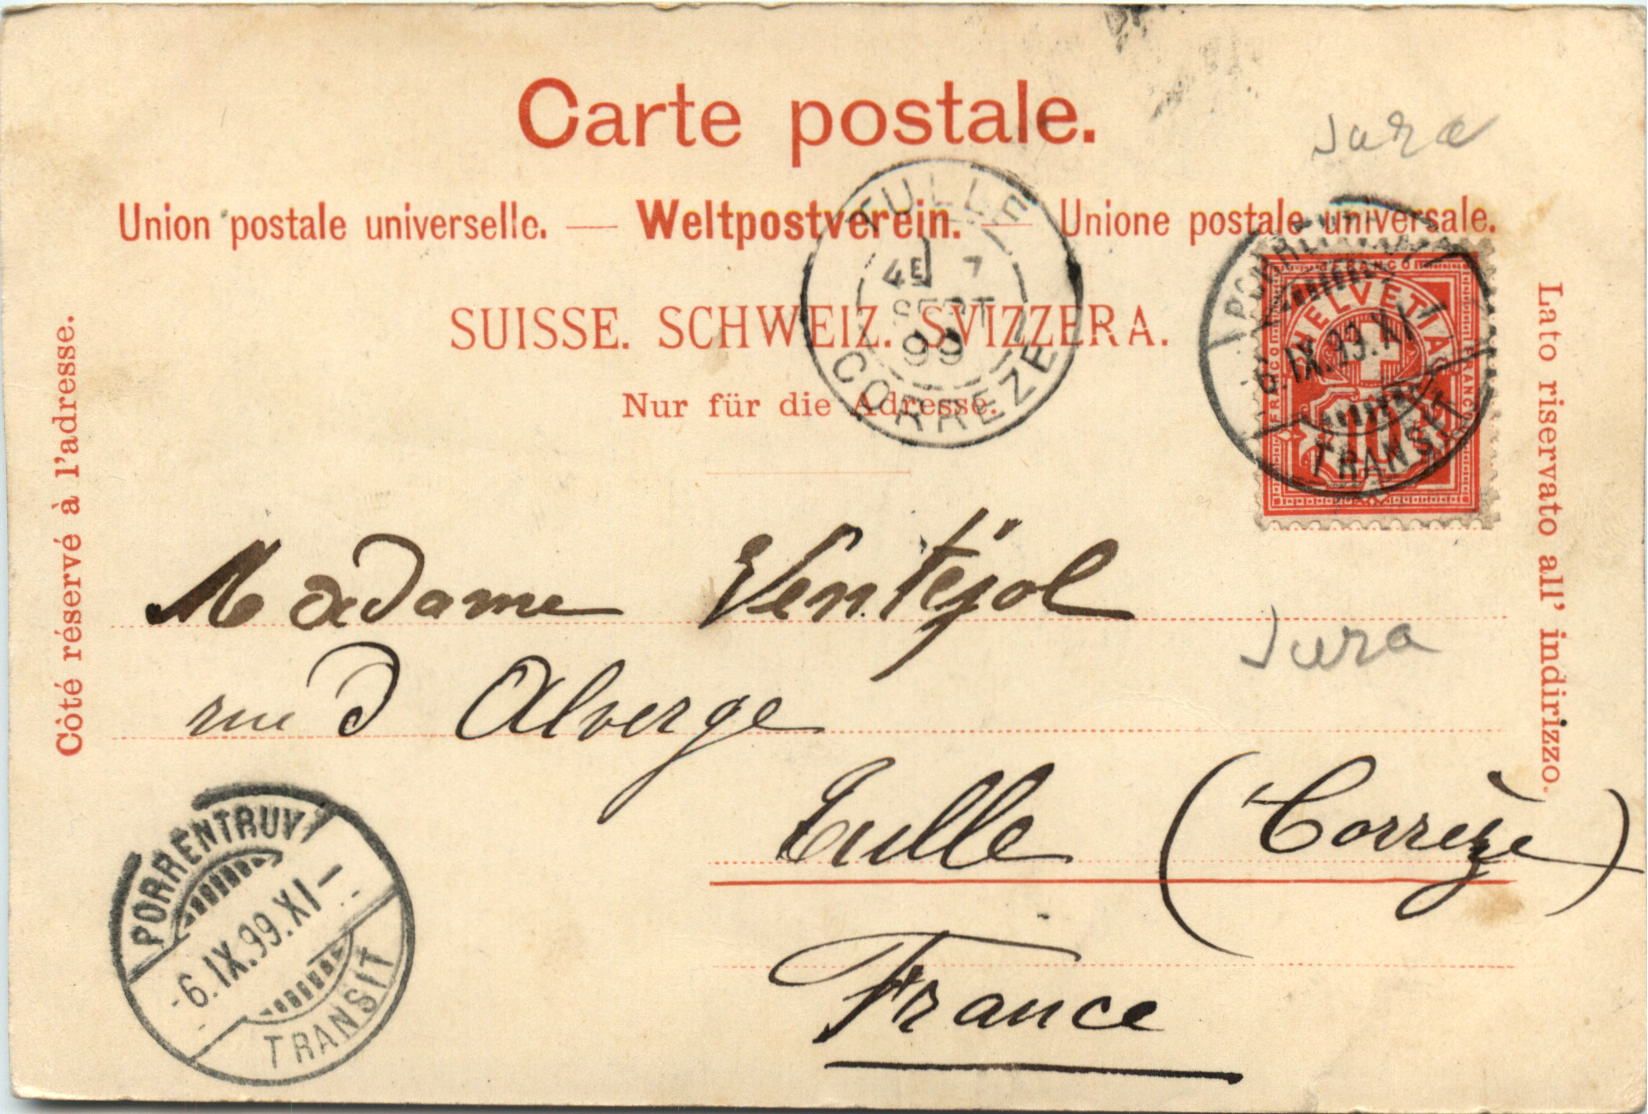 Carte postale.
Jura
Union postale universelle. — Weltpostverein. — Unione postale universale.
TULLE
4E 7
SEPT
99
CORREZE
SUISSE. SCHWEIZ. SVIZZERA.
Nur für die Adresse.
PORRENTRUY
-6.IX.99.XI-
TRANSIT
FRANCO
HELVETIA
FRANCO
FRANCO
10
Côté réservé à l'adresse.
Lato riservato all' indirizzo.
Madame Ventéjol
Jura
rue d Alverge
Tulle (Corrèze)
France
PORRENTRUY
-6.IX.99.XI-
TRANSIT